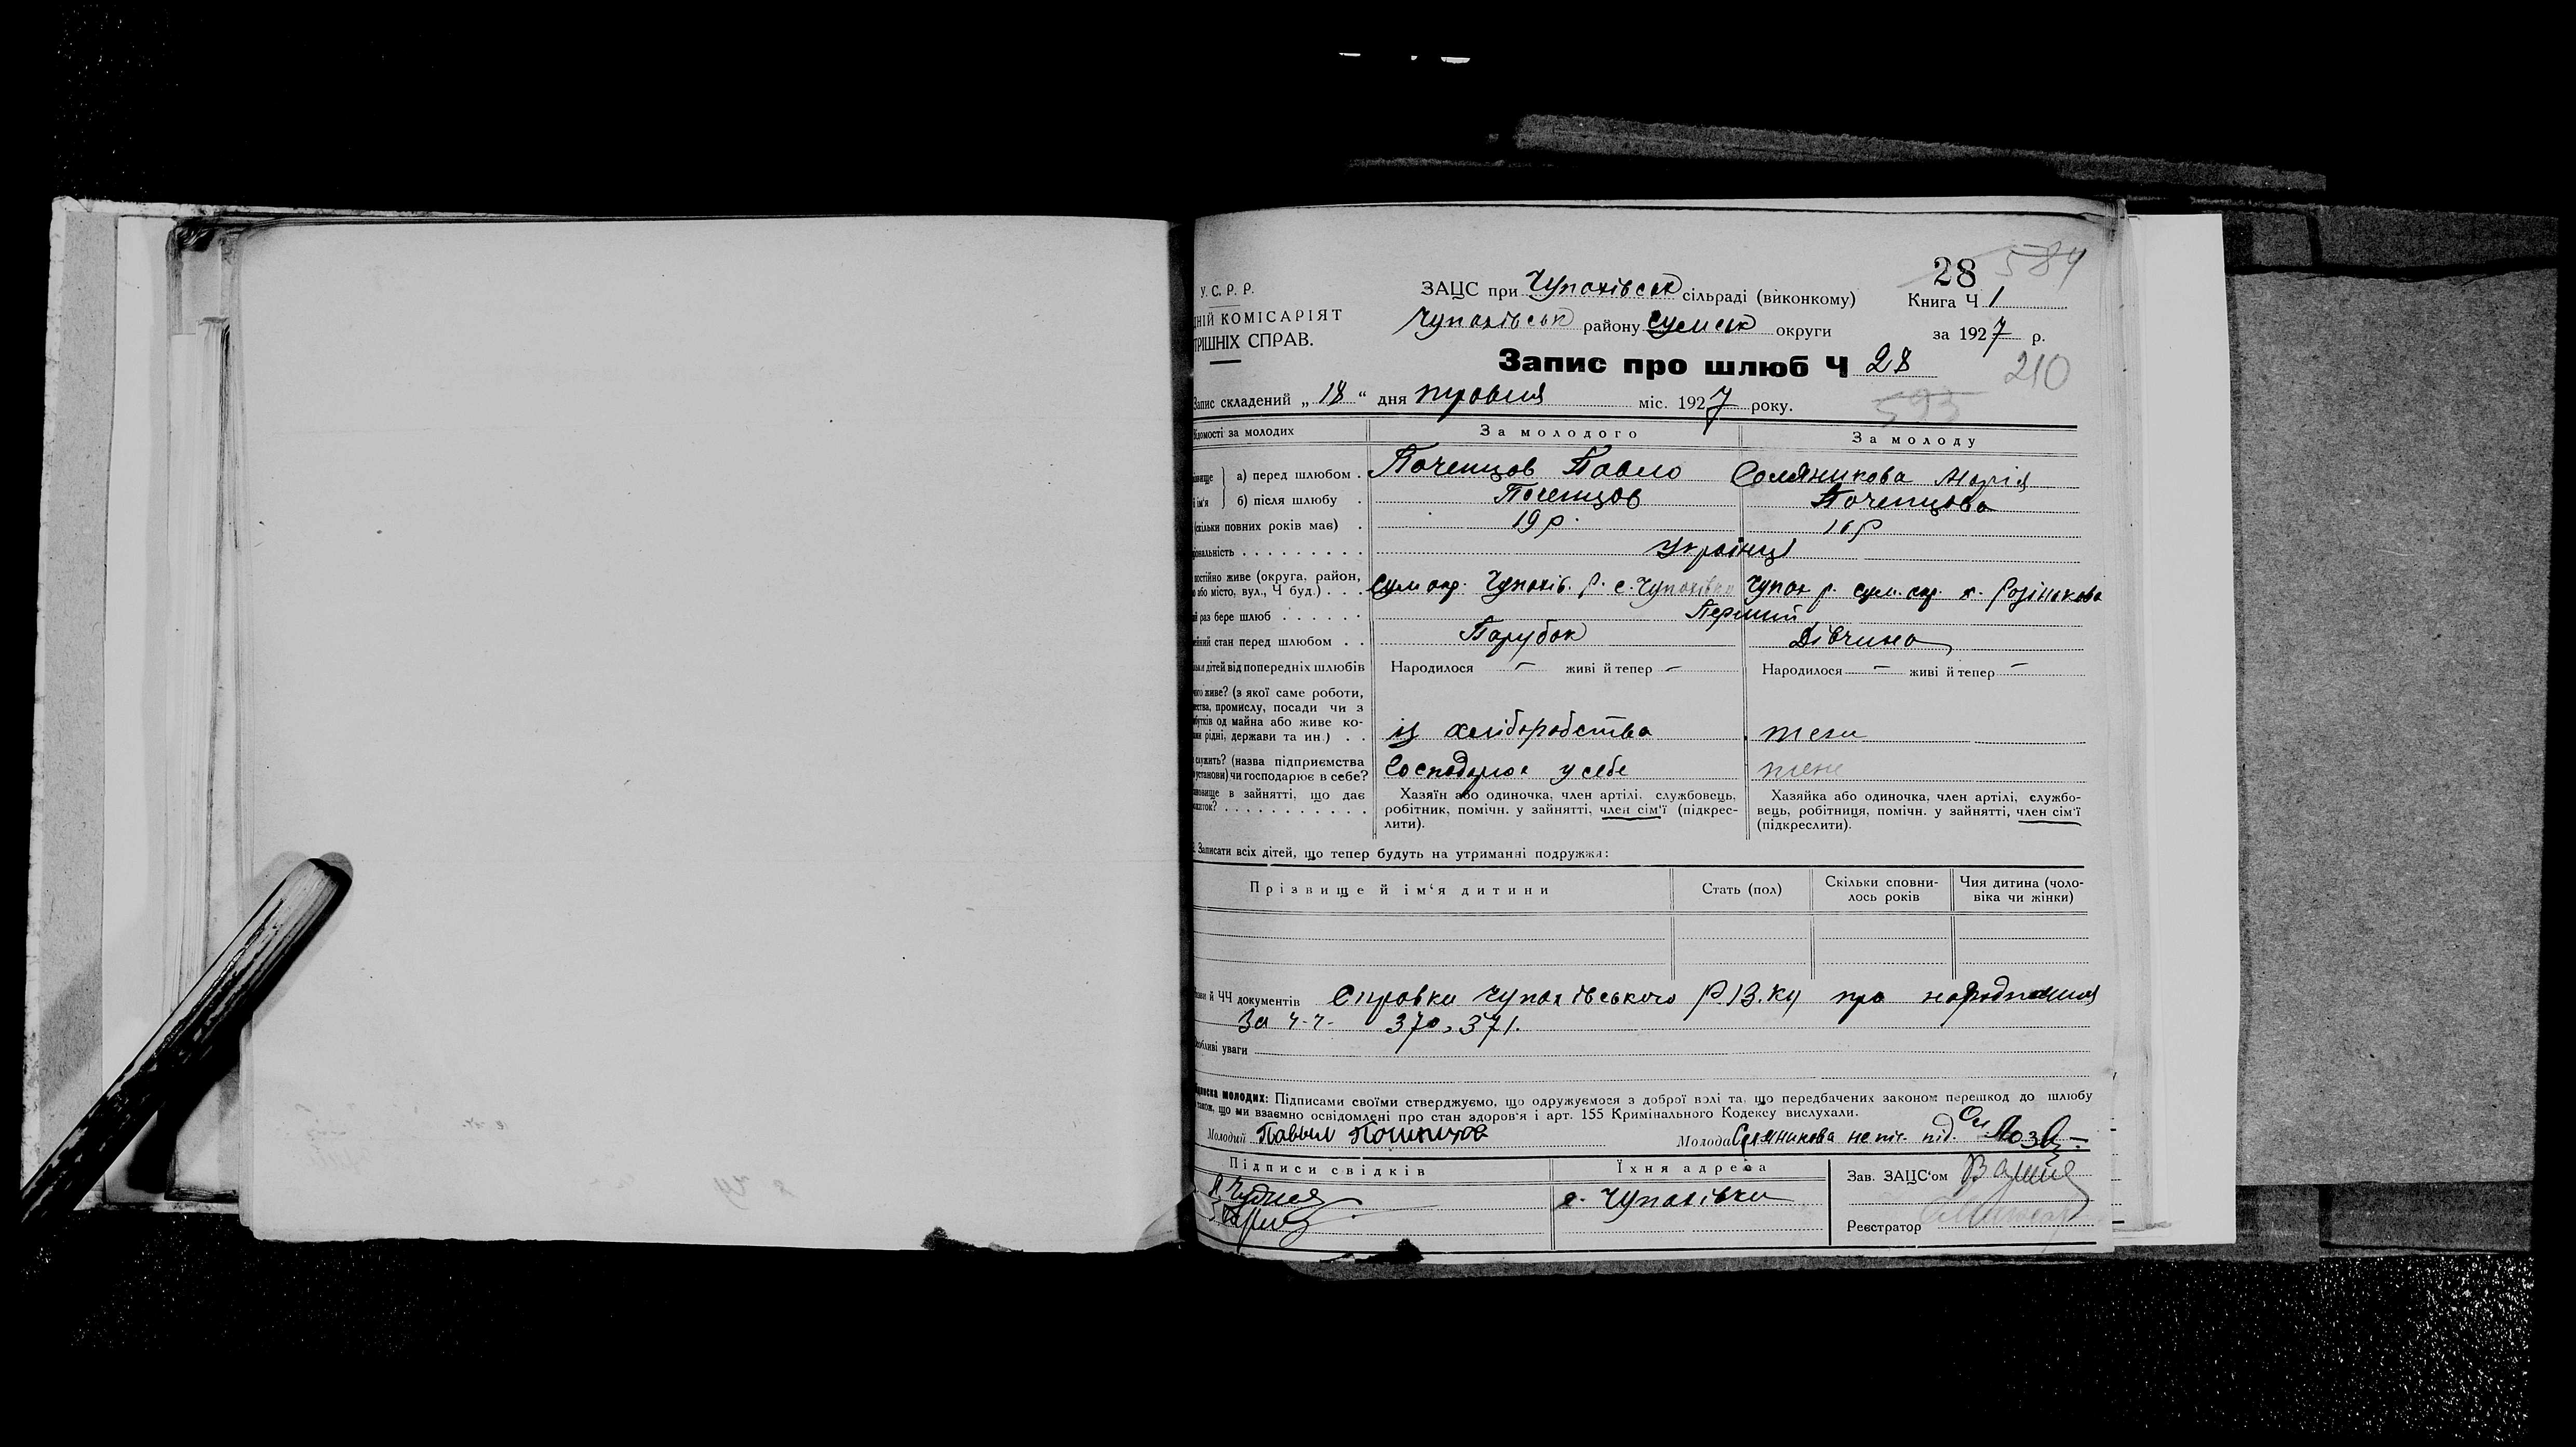 28 584
У. С. Р. Р.
ЗАЦС при Чупахівськ сільраді (виконкому)
Книга Ч 1
НІЙ КОМІСАРІЯТ
Чупахівськ району Сумськ округи
за 1927 р.
ТРІШНІХ СПРАВ.
Запис про шлюб Ч 28
210
Запис складений „ 18 “ дня травня міс. 1927 року.
593
ідомості за молодих
За молодого
За молоду
а) перед шлюбом . Почепцов Павло Соляникова Марія
й ім'я б) після шлюбу . Почепцов Почепцова
скільки повних років має) . 19 р. 16 р
ональність . . . . . . . . . Українці
постійно живе (округа, район, або місто, вул., Ч буд.) . . . Сум окр. Чупахів. р. с. Чупахівка Чупах р. Сум. окр. х.
й раз бере шлюб . . . . . . Перший
ейний стан перед шлюбом . . Парубок Дівчина
льки дітей від попередніх шлюбів Народилося — живі й тепер — Народилося — живі й тепер —
чого живе? (з якої саме роботи,
ества, промислу, посади чи з
бутків од майна або живе ко-
ом рідні, держави та ин.) . . із хліборобства теж
служить? (назва підприємства
установи) чи господарює в себе? Господарює у себе теж
новище в зайнятті, що дає
житок? . . . . . . . . . . .
Хазяїн або одиночка, член артілі, службовець,
робітник, помічн. у зайнятті, член сім'ї (підкрес-
лити).
Хазяйка або одиночка, член артілі, службо-
вець, робітниця, помічн. у зайнятті, член сім'ї
(підкреслити).
Записати всіх дітей, що тепер будуть на утриманні подружжя:
Прізвище й ім'я дитини
Стать (пол)
Скільки сповни-
лось років
Чия дитина (чоло-
віка чи жінки)
й ЧЧ документів Справки Чупахівського Р.В.Ку про народження
За ч-ч- 370, 371.
Особливі уваги
Підписка молодих: Підписами своїми стверджуємо, що одружуємося з доброї волі та, що передбачених законом перешкод до шлюбу
також, що ми взаємно освідомлені про стан здоров'я і арт. 155 Кримінального Кодексу вислухали.
Молодий Павыл Почепцов
Молода Солянникова не піс. під.
Підписи свідків
Їхня адреса
Зав. ЗАЦС'ом
с. Чупахівка
Реєстратор